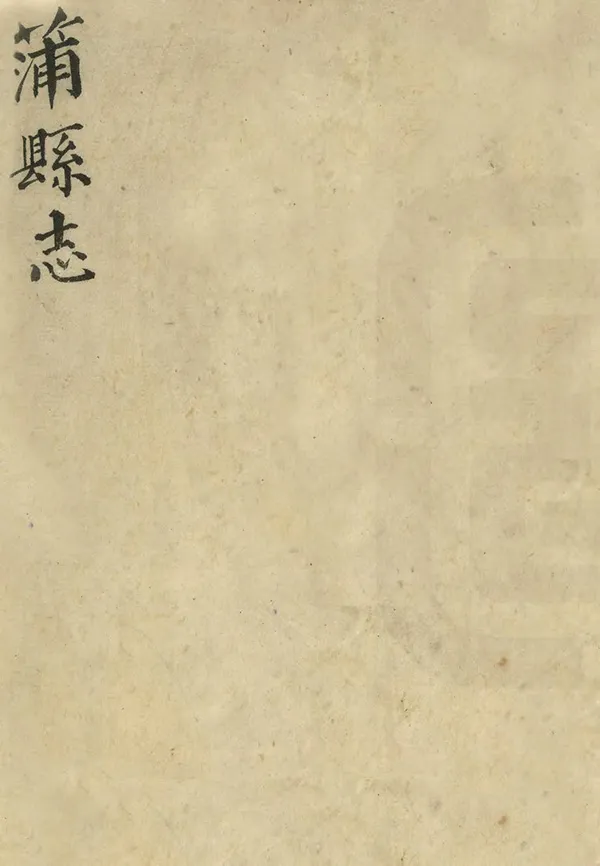 蒲縣志